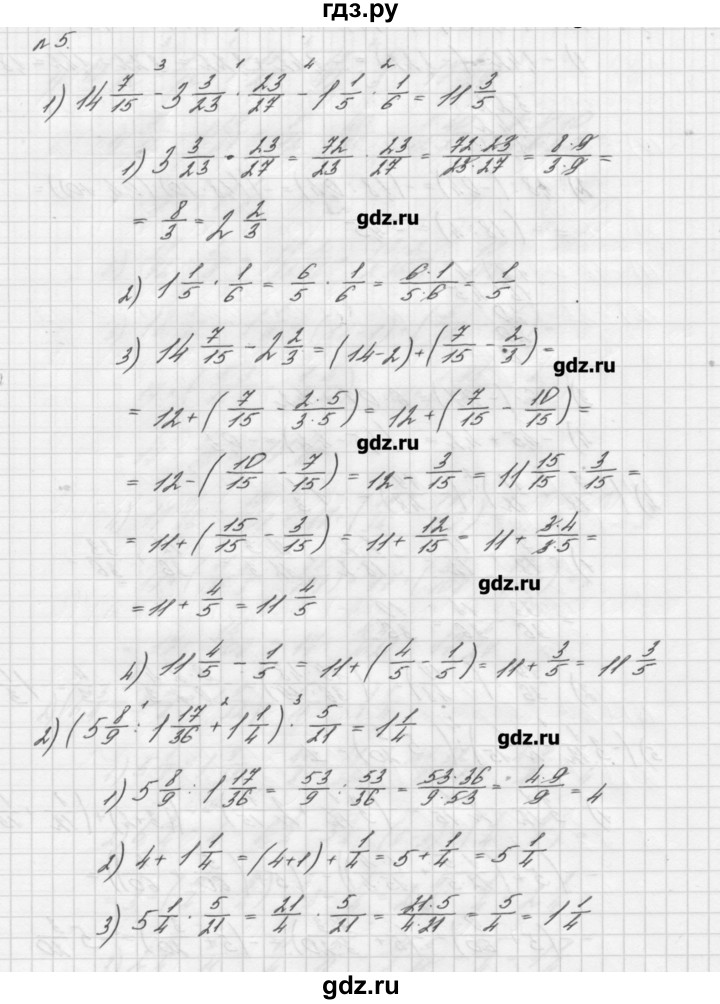 гдз.ру
№5.
1) 14 7/15 - 3 3/23 · 23/27 - 1 1/5 · 1/6 = 11 3/5
1) 3 3/23 · 23/27 = 72/23 · 23/27 = 72·23/23·27 = 8·9/3·9 =
= 8/3 = 2 2/3
gdz.ru
2) 1 1/5 · 1/6 = 6/5 · 1/6 = 6·1/5·6 = 1/5
3) 14 7/15 - 2 2/3 = (14-2)+(7/15 - 2/3) =
gdz.ru
= 12+(7/15 - 2·5/3·5) = 12+(7/15 - 10/15) =
gdz.ru
= 12-(10/15 - 7/15) = 12 - 3/15 = 11 15/15 - 3/15 =
= 11+(15/15 - 3/15) = 11+ 12/15 = 11+ 3·4/3·5 =
gdz.ru
= 11+ 4/5 = 11 4/5
4) 11 4/5 - 1/5 = 11+(4/5 - 1/5) = 11+ 3/5 = 11 3/5
2) (5 8/9 : 1 17/36 + 1 1/4) · 5/21 = 1 1/4
gdz.ru
1) 5 8/9 : 1 17/36 = 53/9 : 53/36 = 53·36/9·53 = 4·9/9 = 4
2) 4+ 1 1/4 = (4+1)+ 1/4 = 5+ 1/4 = 5 1/4
3) 5 1/4 · 5/21 = 21/4 · 5/21 = 21·5/4·21 = 5/4 = 1 1/4
gdz.ru